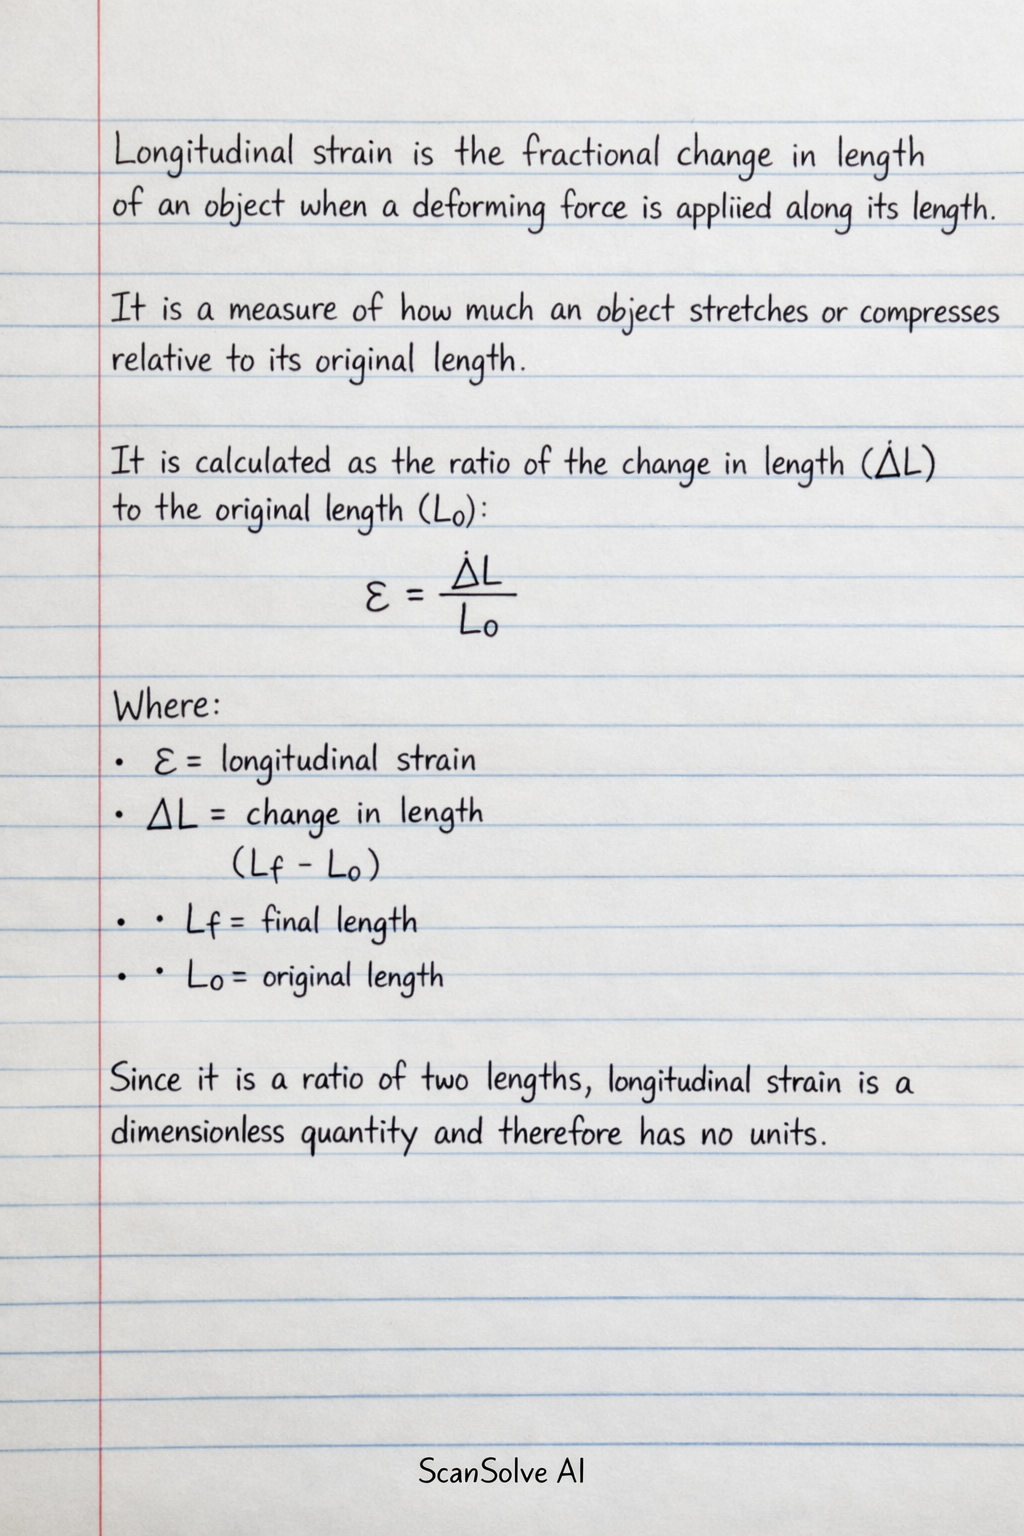 Longitudinal strain is the fractional change in length
of an object when a deforming force is appliied along its length.
It is a measure of how much an object stretches or compresses
relative to its original length.
It is calculated as the ratio of the change in length (Δ̇L)
to the original length (Lo):
ε = Δ̇L
Lo
Where:
• ε = longitudinal strain
• ΔL = change in length
(Lf - Lo)
• • Lf = final length
• • Lo = original length
Since it is a ratio of two lengths, longitudinal strain is a
dimensionless quantity and therefore has no units.
ScanSolve AI